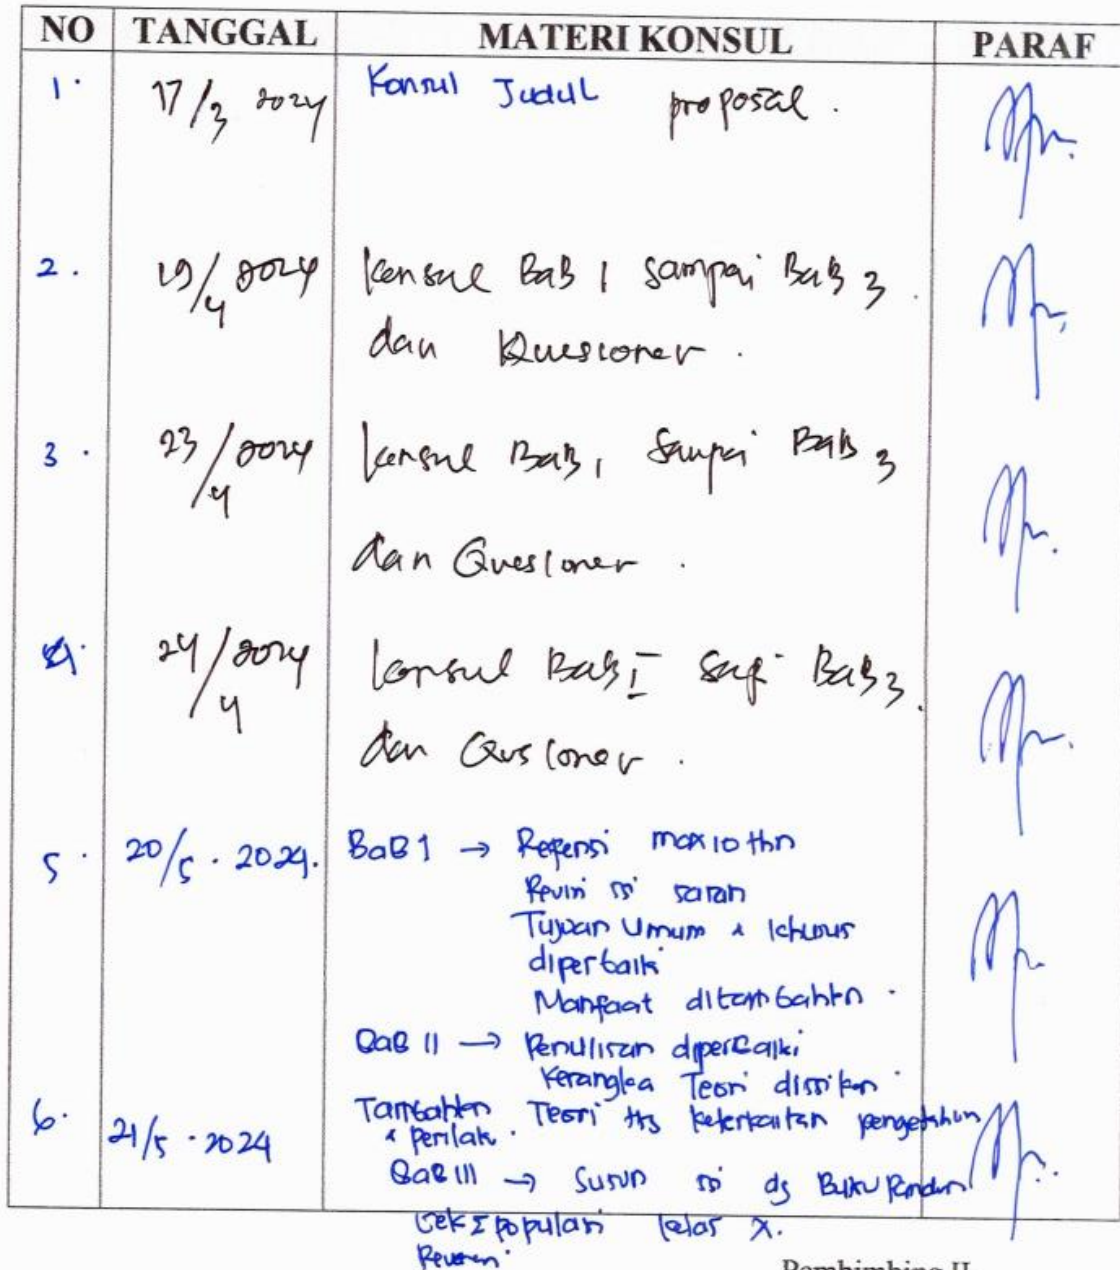 NO TANGGAL MATERI KONSUL PARAF
1. 17/3 2024 Konsul Judul proposal.
2. 19/4 2024 Konsul BaB 1 sampai BaB 3.
dan Kuesioner.
3. 23/4 2024 Konsul BaB 1 Sampai BaB 3
dan Quesioner.
4. 24/4 2024 Konsul BaB I BaB 3.
dan Qusioner.
5. 20/5. 2024. BaB 1 → Refensi max 10 thn
Revisi isi saran
Tujuan Umum & khusus
diperbaiki
Manfaat ditambahkn.
BaB II → Penulisan diperbaiki
Kerangka Teori
6. 21/5. 2024 Tambahkn Teori ttg keterkaitan pengetahun
& perilak.
BaB III → Susun isi dg Buku Pandun
Cek Σ populasi kelas X.
Pembimbing II